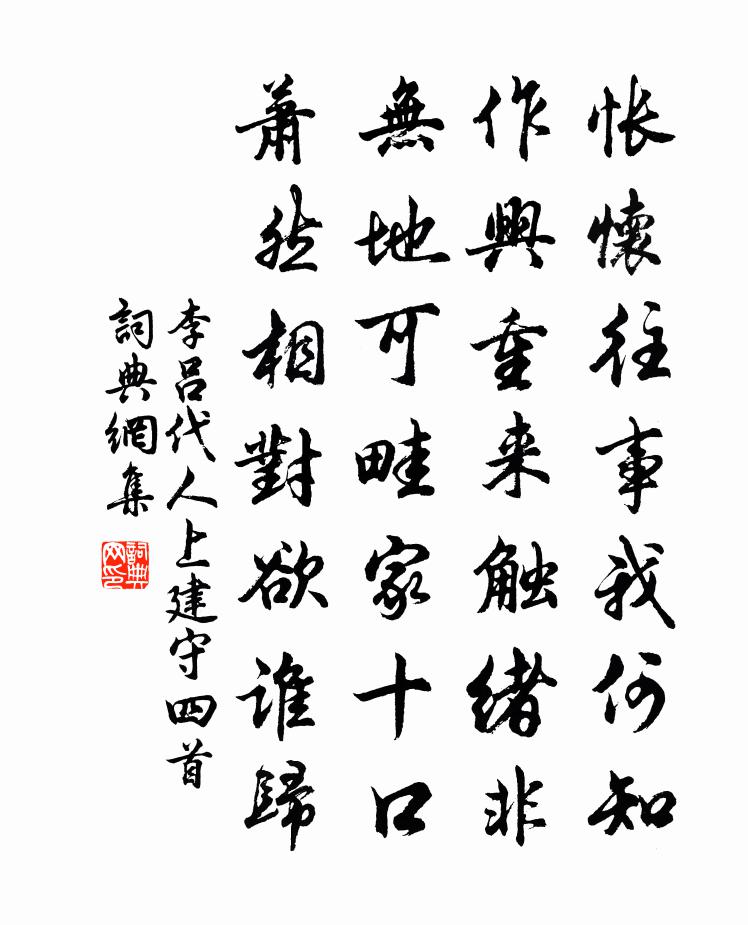 悵懷往事我何知
作興重来触緒非
無地可畦家十口
蕭然相對欲誰歸
李呂代人上建守四首
詞典網集
詞典网印